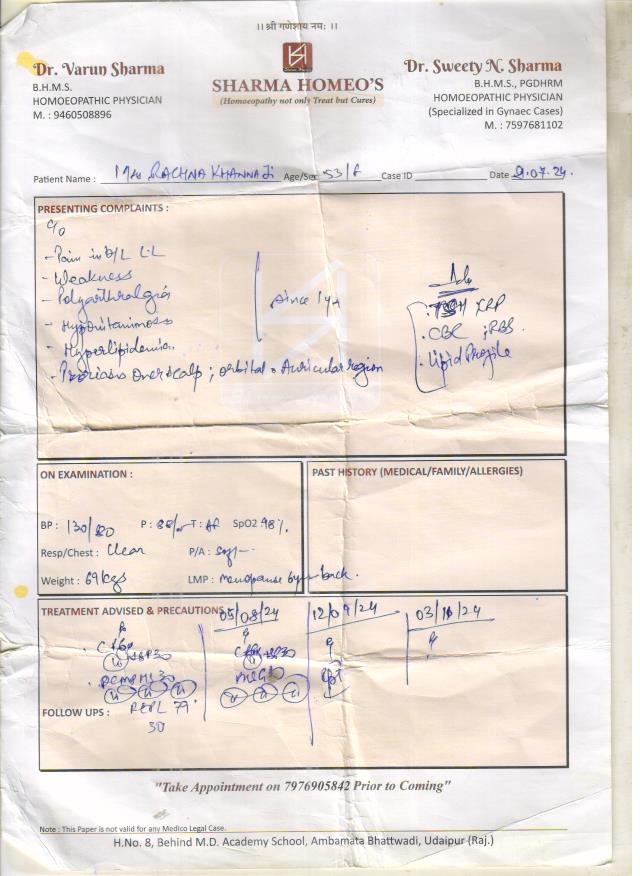 ।। श्री गणेशाय नमः ।।
Dr. Varun Sharma
B.H.M.S.
HOMOEOPATHIC PHYSICIAN
M. : 9460508896
SHARMA HOMEO'S
(Homoeopathy not only Treat but Cures)
Dr. Sweety N. Sharma
B.H.M.S., PGDHRM
HOMOEOPATHIC PHYSICIAN
(Specialized in Gynaec Cases)
M. : 7597681102
Patient Name : Mrs RACHNA KHANNA Ji Age/Sex 53/F Case ID Date 9.07.24
PRESENTING COMPLAINTS :
C/o
- Pain in B/L L.L
- Weakness
- Polyarthralgia
- Hyperlipidemia
- Psoriasis over scalp ; orbital & Auricular region
Since 1 yr
Adv
TSH CRP
. CBC ; RBS .
. Lipid Profile
ON EXAMINATION :
BP : 130/80 P : T : Af SpO2 98%
Resp/Chest : Clear P/A : Soft
Weight : 69 kgs LMP : Menopause back.
PAST HISTORY (MEDICAL/FAMILY/ALLERGIES)
TREATMENT ADVISED & PRECAUTIONS
05/08/24
12/09/24
03/10/24
REPL 77
30
FOLLOW UPS :
"Take Appointment on 7976905842 Prior to Coming"
Note : This Paper is not valid for any Medico Legal Case.
H.No. 8, Behind M.D. Academy School, Ambamata Bhattwadi, Udaipur (Raj.)